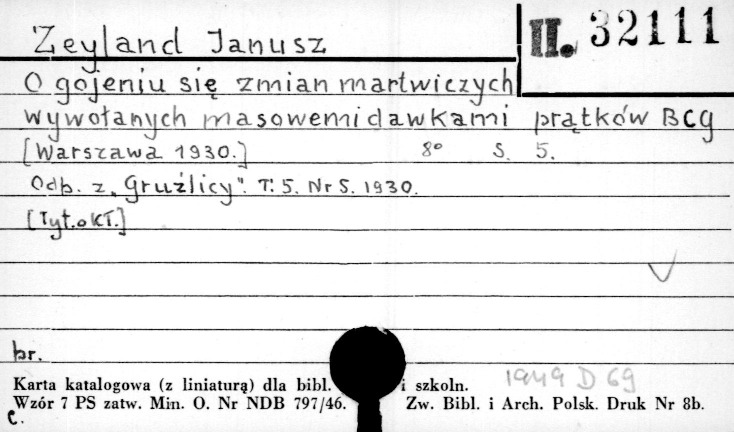 Zeyland Janusz
II. 32111
O gojeniu się zmian martwiczych
wywołanych masowemi dawkami prątków BCG
[Warszawa 1930.] 8° s. 5.
Odb. z „Gruźlicy". T. 5. Nr 5. 1930.
[Tyt. okł.]
br.
1949 D 69
Karta katalogowa (z liniaturą) dla bibl. i szkoln.
Wzór 7 PS zatw. Min. O. Nr NDB 797/46. Zw. Bibl. i Arch. Polsk. Druk Nr 8b.
c.